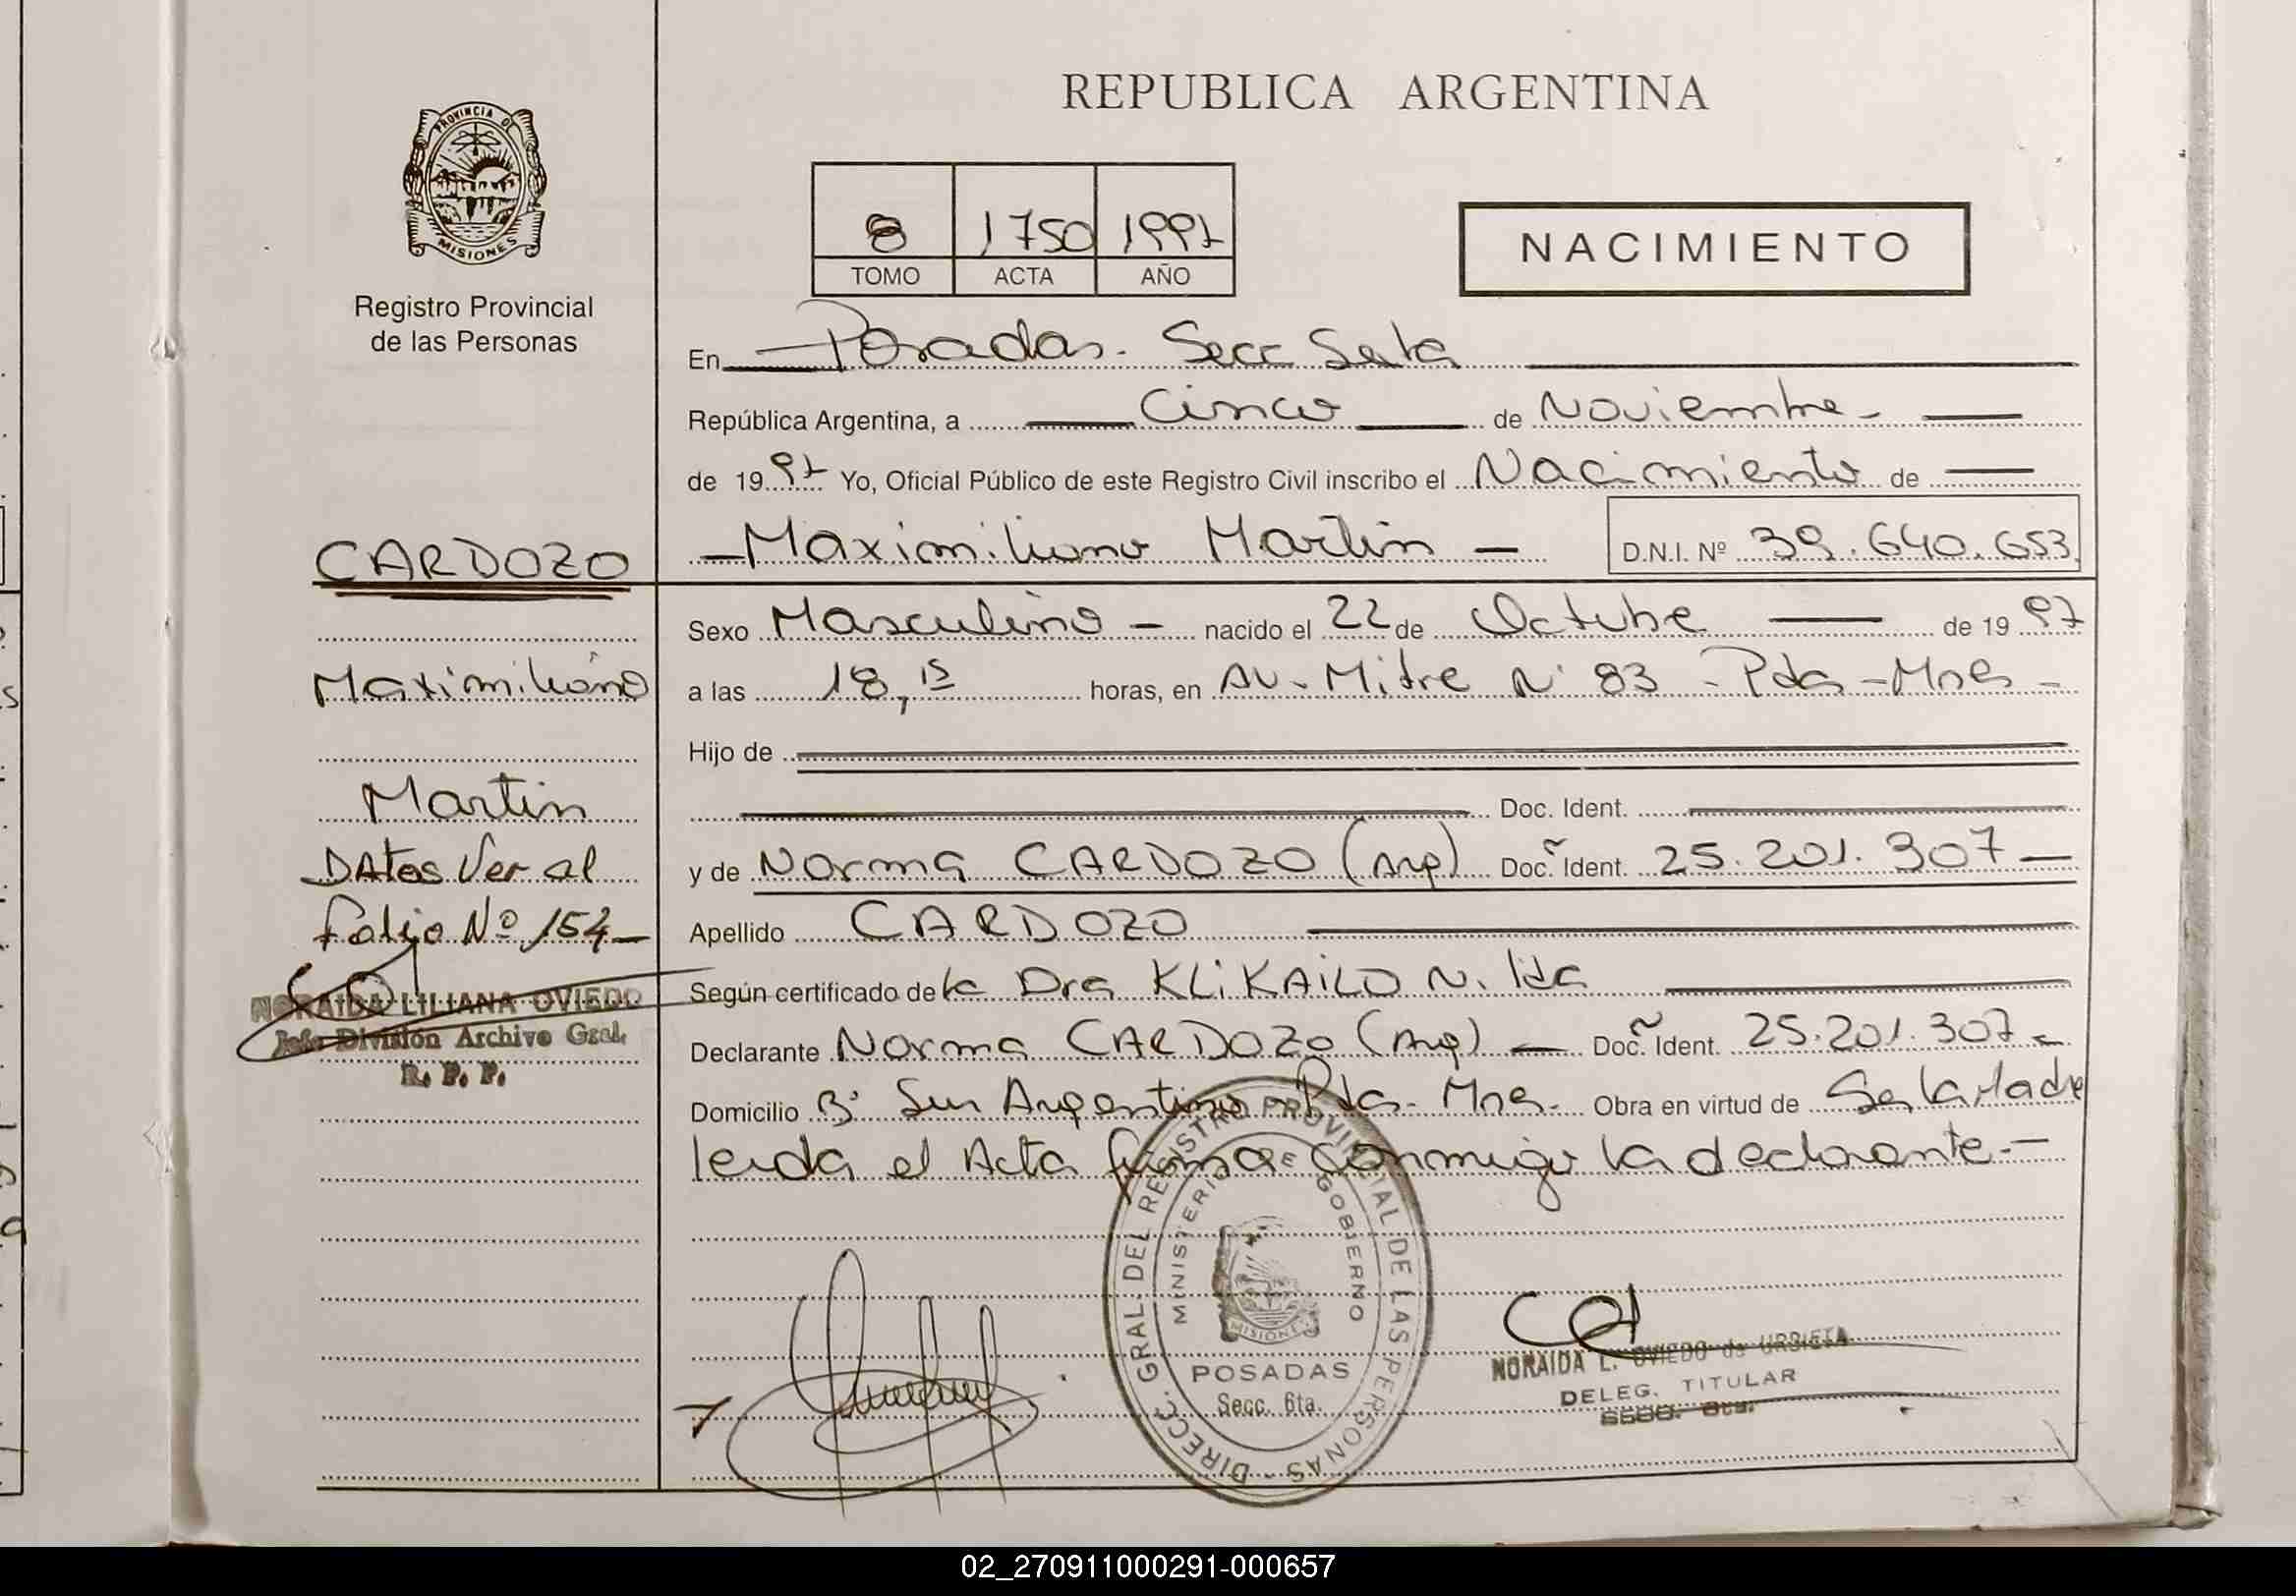 REPUBLICA ARGENTINA
PROVINCIA DE
MISIONES
Registro Provincial
de las Personas
8 1750 1997
TOMO ACTA AÑO
NACIMIENTO
En Posadas - Secc Sexta
República Argentina, a Cinco de Noviembre -
de 19 97 Yo, Oficial Público de este Registro Civil inscribo el Nacimiento de
- Maximiliano Martin - D.N.I. Nº 39.640.653
CARDOZO
Maximiliano
Martin
DAtos Ver al
folio Nº 154 -
NORAIDA LILIANA OVIEDO
Jefe División Archivo Gral.
R. P. P.
Sexo Masculino - nacido el 22 de Octubre de 19 97
a las 18,15 horas, en AV. Mitre N° 83 - Pdas - Mnes -
Hijo de
Doc. Ident.
y de Norma CARDOZO (Arg) Doc. Ident. 25.201.307 -
Apellido CARDOZO
Según certificado de la Dra KLiKAiLO Nilda
Declarante Norma CARDOZO (Arg) - Doc. Ident. 25.201.307 -
Domicilio B° Sur Argentino - Pdas - Mnes - Obra en virtud de Ser la Madre
leida el Acta firma conmigo la declarante. -
DIRECC. GRAL. DEL REGISTRO PROVINCIAL DE LAS PERSONAS -
MINISTERIO DE GOBIERNO
MISIONES
POSADAS
Secc. 6ta.
NORAIDA L. OVIEDO de URBIETA
DELEG. TITULAR
Secc. 6ta.
02_270911000291-000657